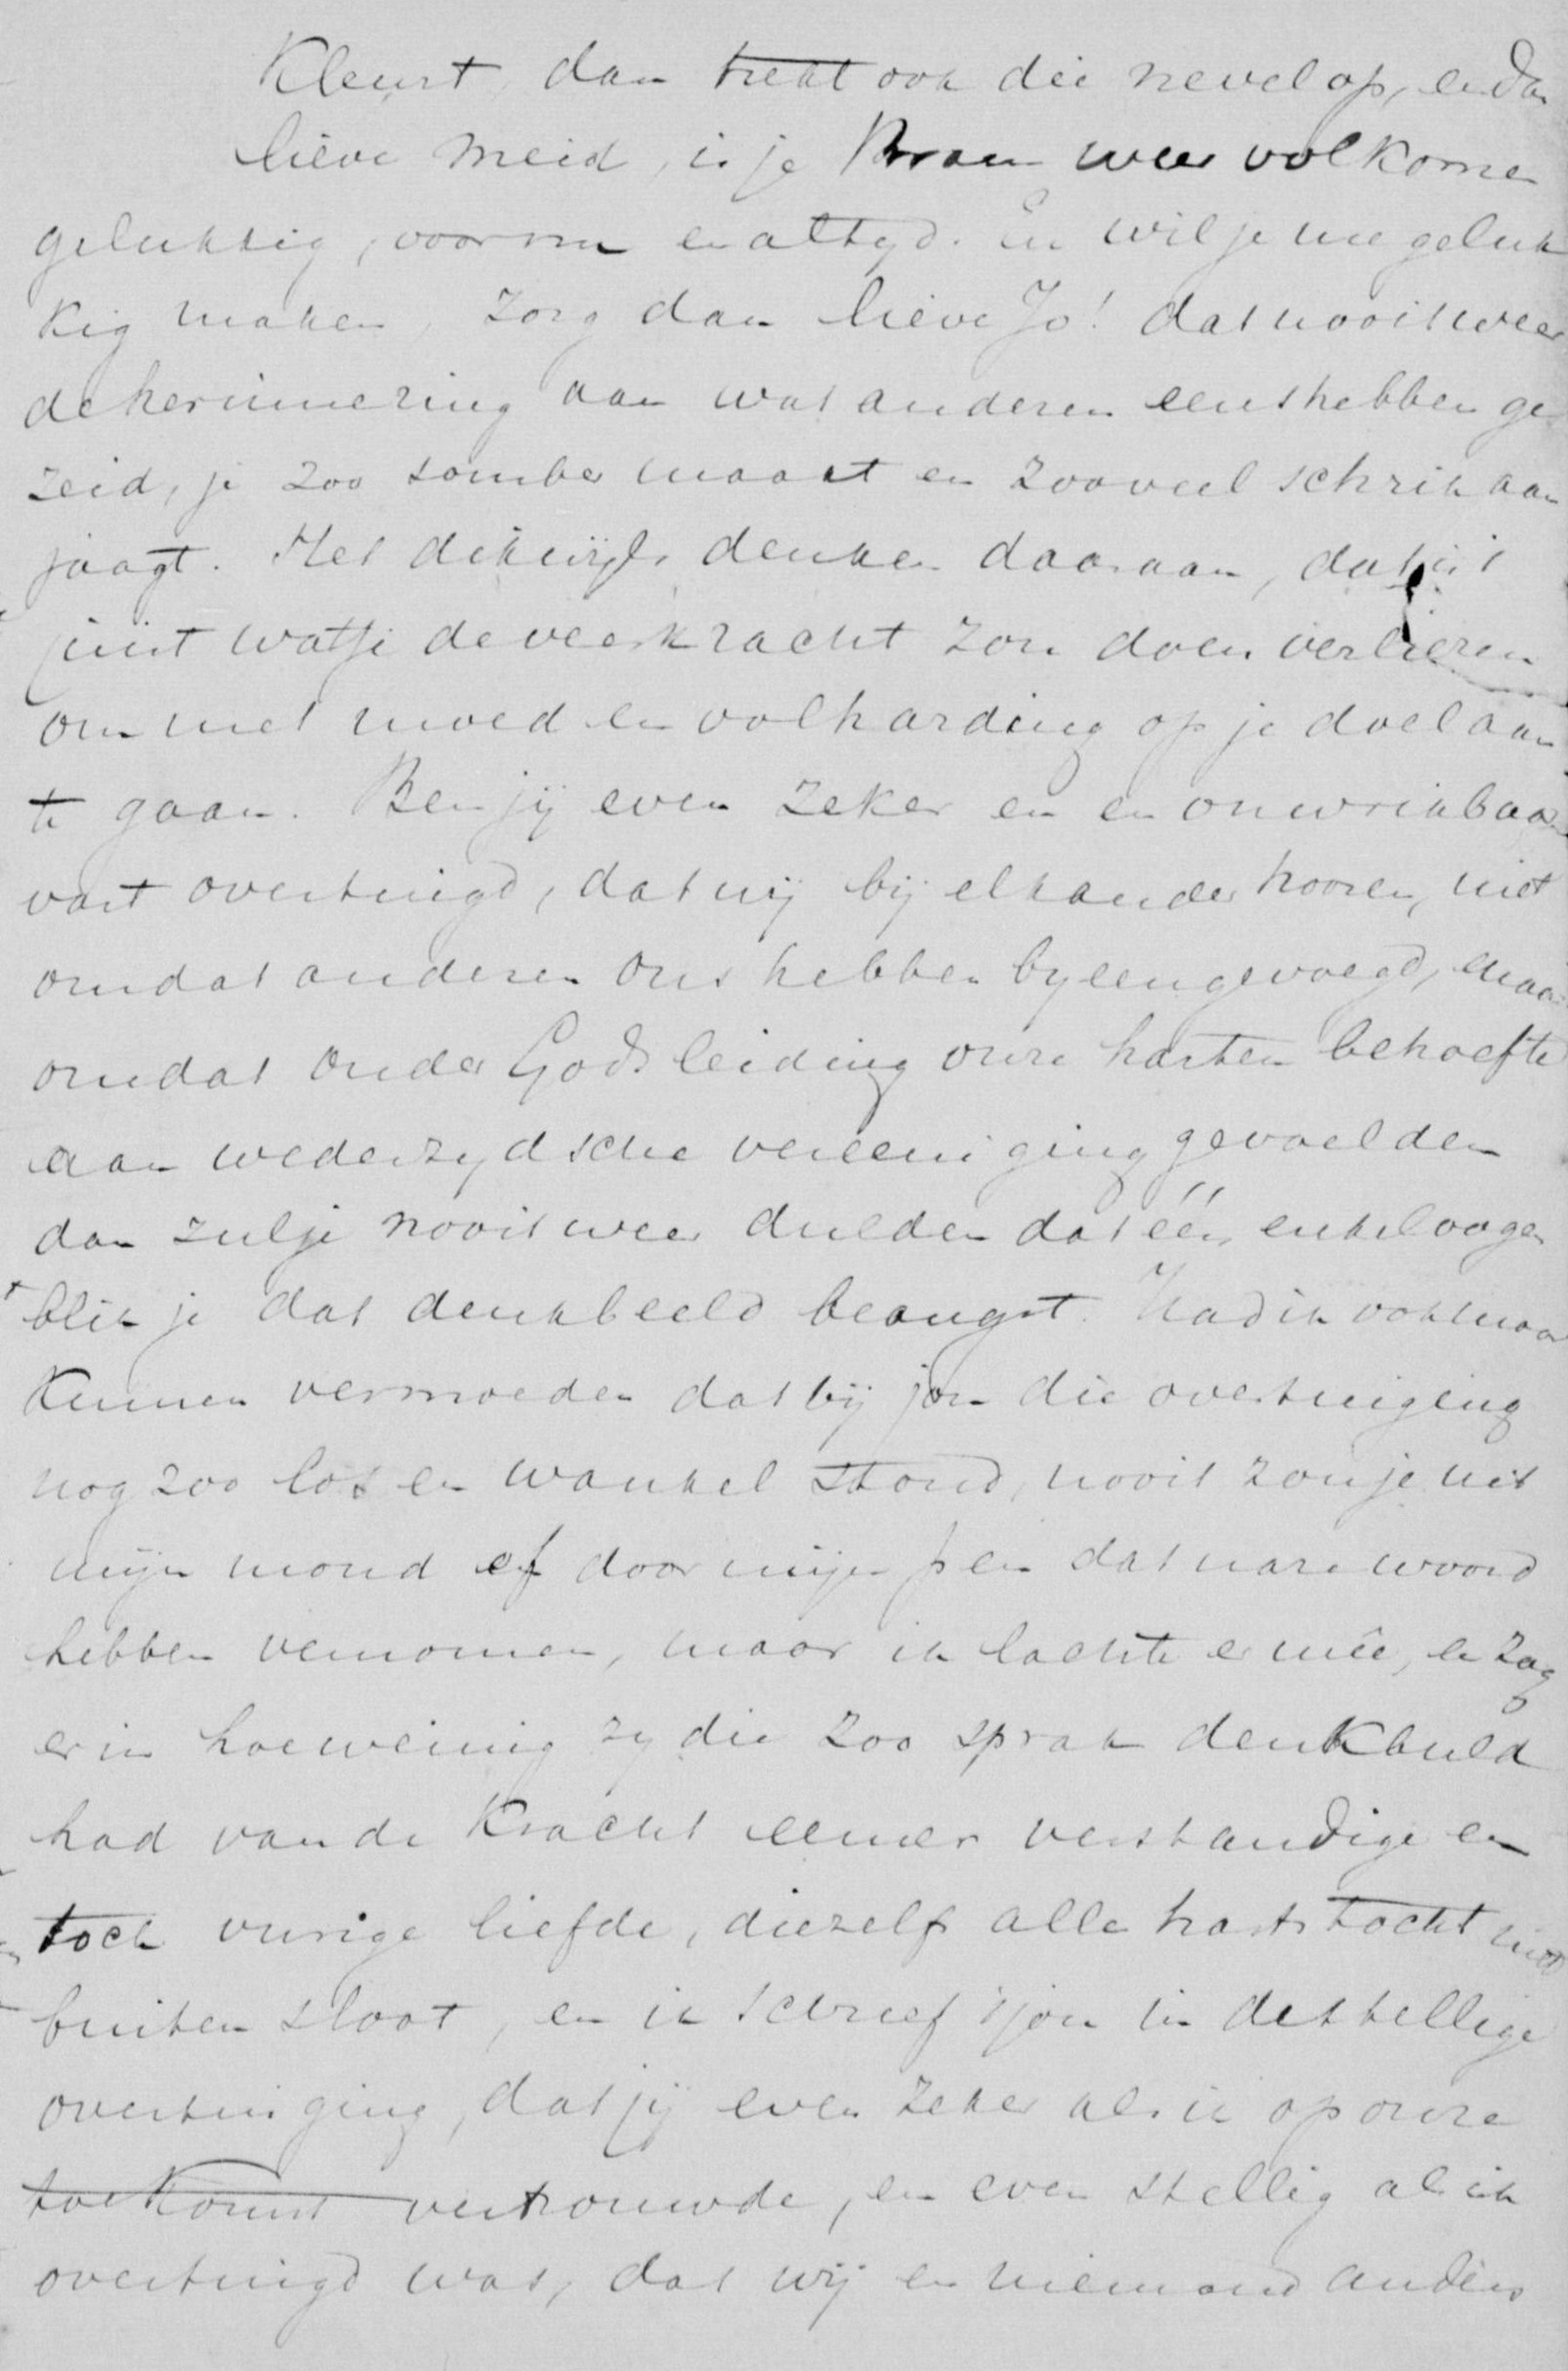 Kleurt, dan trekt ook die nevel op, en dan
lieve meid, is je Bram weer volkomen
gelukkig, voor nu en altyd. En wil je me geluk
kig maken, zorg dan lieve Jo! dat nooit weer
de herinnering aan wat anderen eens hebben ge
zeid, je zoo somber maakt en zooveel schrik aan
jaagt. Het dikwijls denken daaraan, dat is
juist wat je de veerkracht zou doen verliezen
om met moed en volharding op je doel aan
te gaan. Ben jij even zeker en en onwrikbaar
vast overtuigd, dat wij bij elkander hooren, niet
omdat anderen ons hebben byeengevoegd, maar
omdat onder Gods leiding onze harten behoefte
aan wederzydsche vereeniging gevoelden
dan zul je nooit weer dulden dat één enkel oogen
blik je dat denkbeeld beangst. Had ik ook maar
kunnen vermoeden dat bij jou die overtuiging
nog zoo los en wankel stond, nooit zou je uit
mijn mond of door mijn pen dat nare woord
hebben vernomen, maar ik lachte er meê, en zag
er in hoe weinig zy die zoo sprak denkbeeld
had van de kracht eener verstandige en
toch vurige liefde, die zelfs alle hartstocht niet
buiten sloot, en ik schreef 't jou in de stellige
overtuiging, dat jij even zeker als ik op onze
toekomst vertrouwde, en even stellig als ik
overtuigd was, dat wij en niemand anders